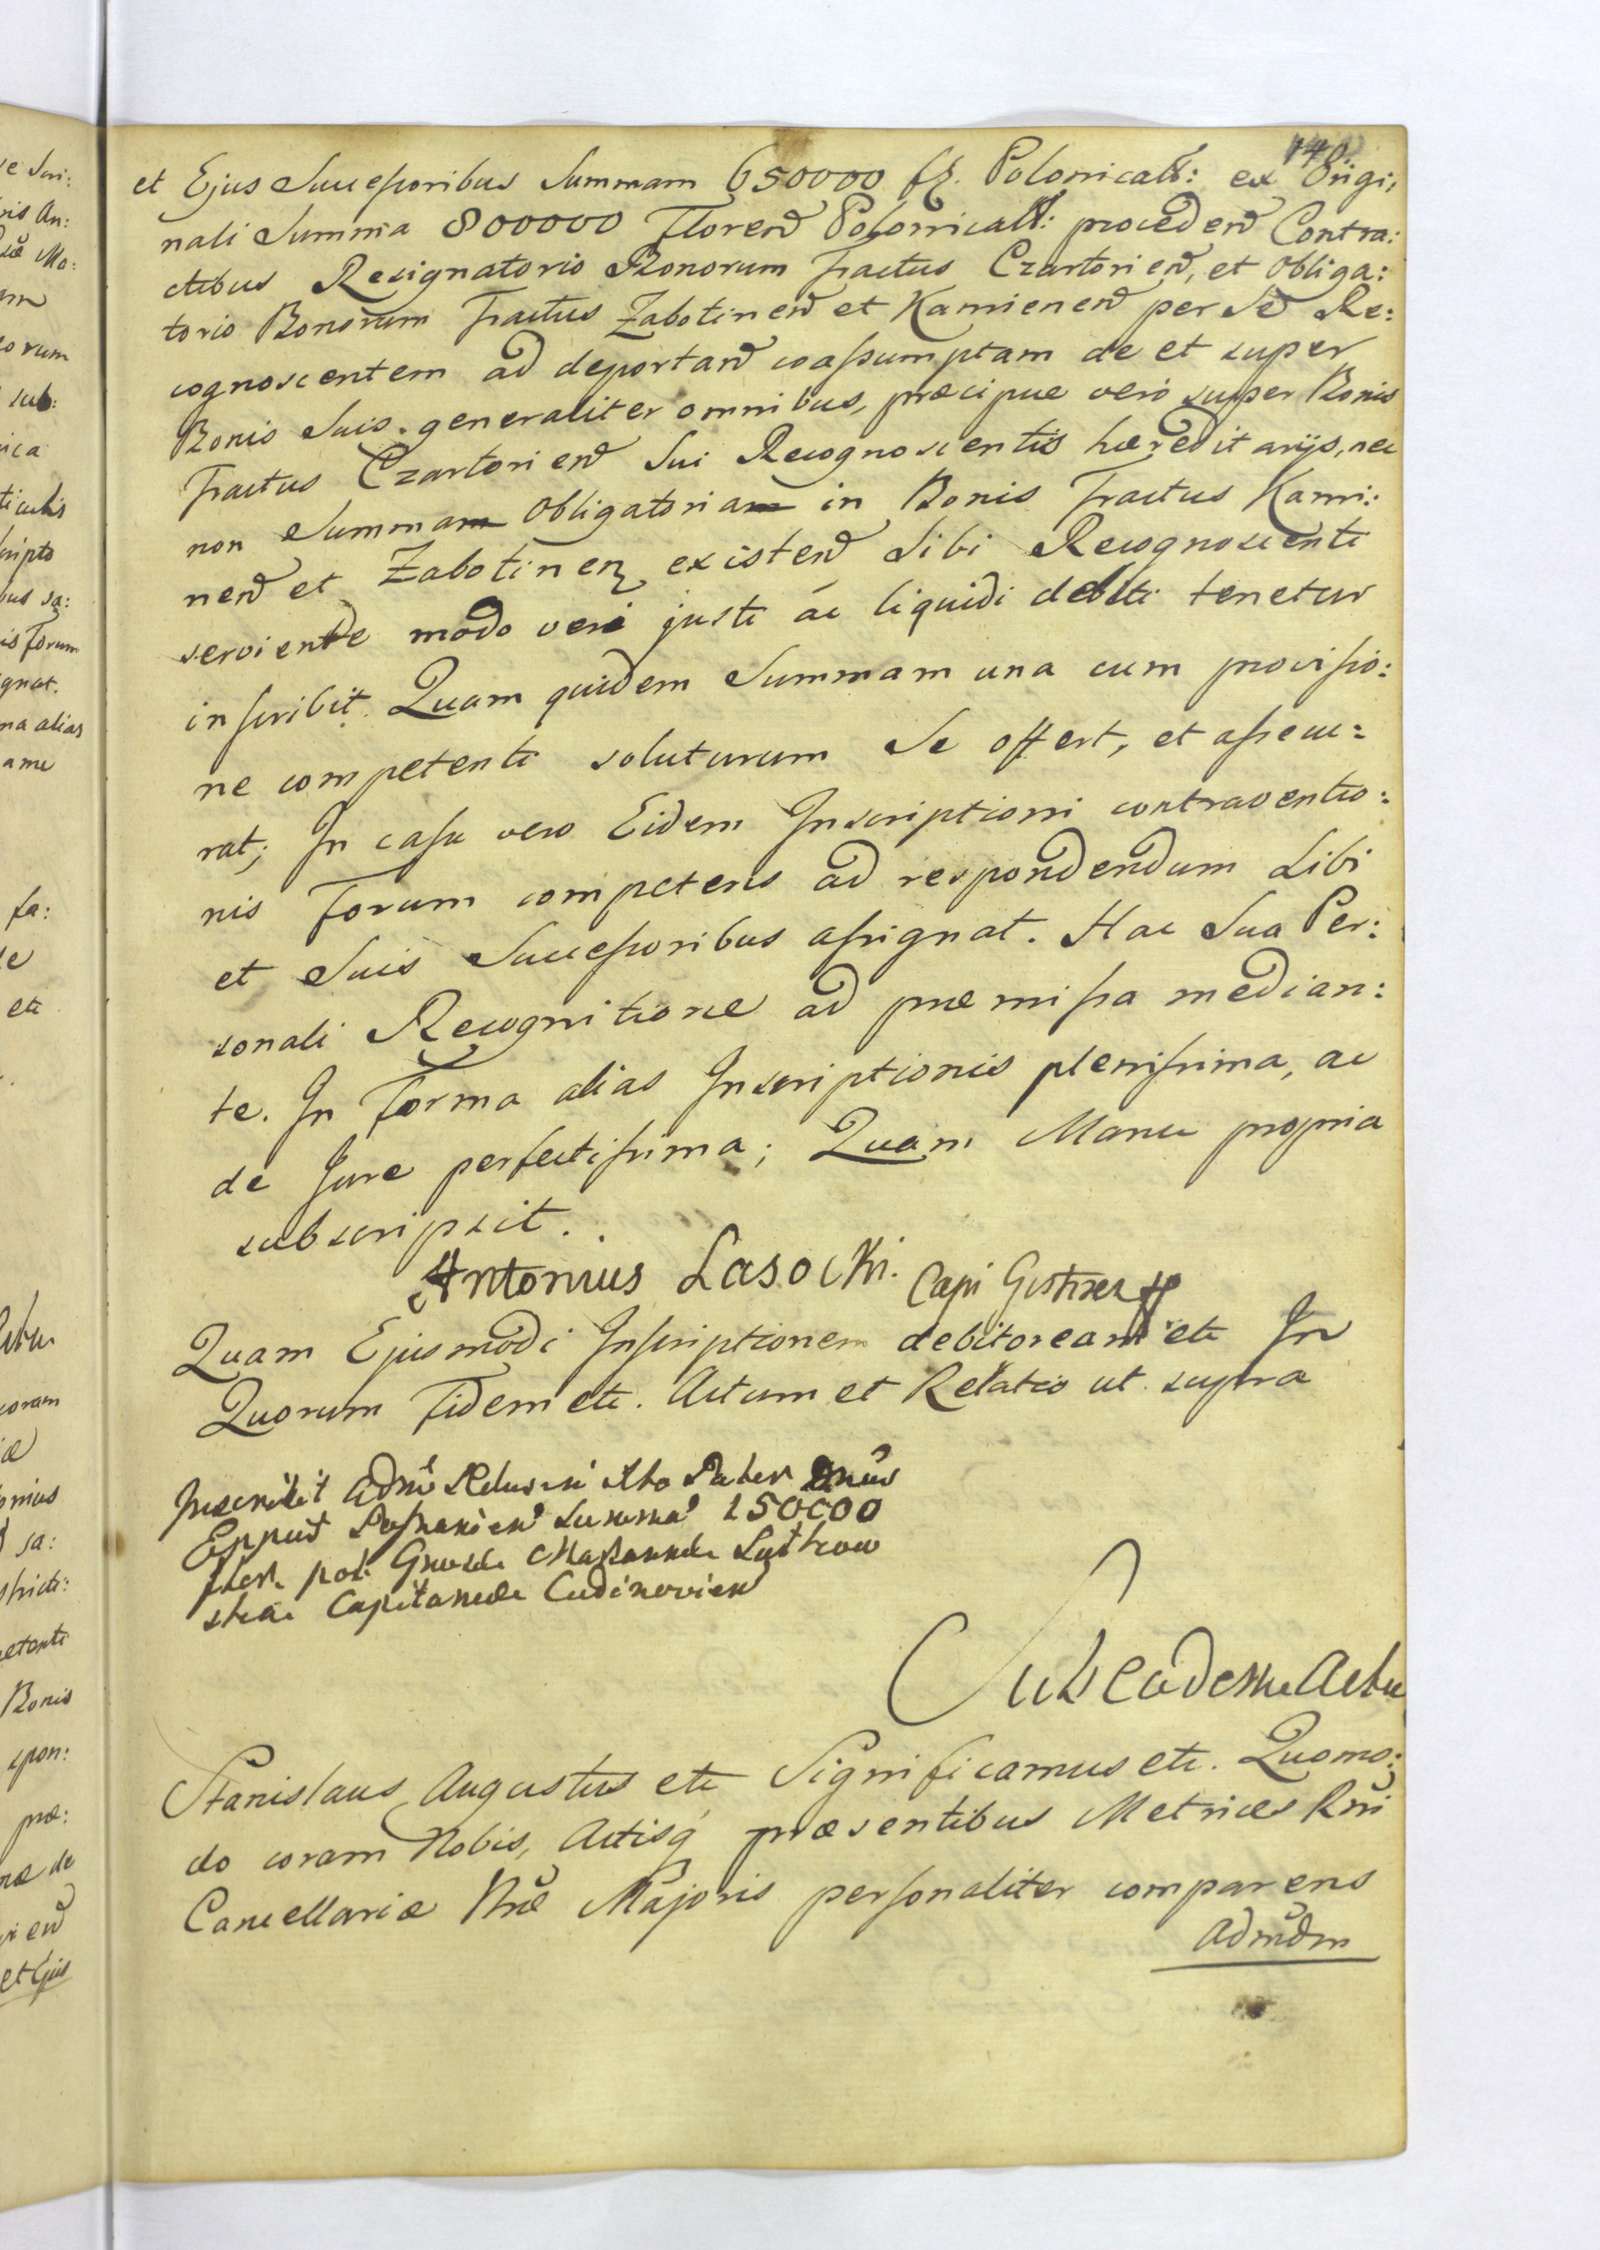 et Ejus Successoribus Summam 650000 fl. Polonicall: ex Origi:
nali Summa 800000 Florenor Polonicall: proceden Contra:
ctibus Resignatorio Bonorum Tractus Czartorien, et Obliga:
torio Bonorum Tractus Zabotinen et Kamienen per Se Re:
cognoscentem ad deportand coassumptam de et super
Bonis Suis generaliter omnibus, præcipue vero super Bonis
Tractus Czartorien Sui Recognoscentis hæreditarijs, nec
non Summam Obligatoriam in Bonis Tractus Kami:
nen et Zabotinen existen Sibi Recognoscenti
serviente modo veri justi ac liquidi debiti tenetur
inscribit. Quam quidem Summam una cum provisio:
ne competenti soluturum Se offert, et assecu:
rat; In casu vero Eidem Inscriptioni contraventio:
nis Forum competens ad respondendum Sibi
et Suis Successoribus assignat. Hac Sua Per:
sonali Recognitione ad præmissa median:
te. In Forma alias Inscriptionis plenissima, ac
de Jure perfectissima; Quam Manu propria
subscripsit.
Antonius Lasocki. Capi Gostinen
Quam Ejusmodi Inscriptionem debitoream etc In
Quorum Fidem etc. Actum et Relatio ut supra
Inscribit Adm
Summa 150000
pol:
Capitanede
Sub eadem Actu
Stanislaus Augustus etc Significamus etc. Quomo:
do coram Nobis, Actisq præsentibus Metrices Rni
Cancellariæ Nræ Majoris personaliter comparens
Admdm